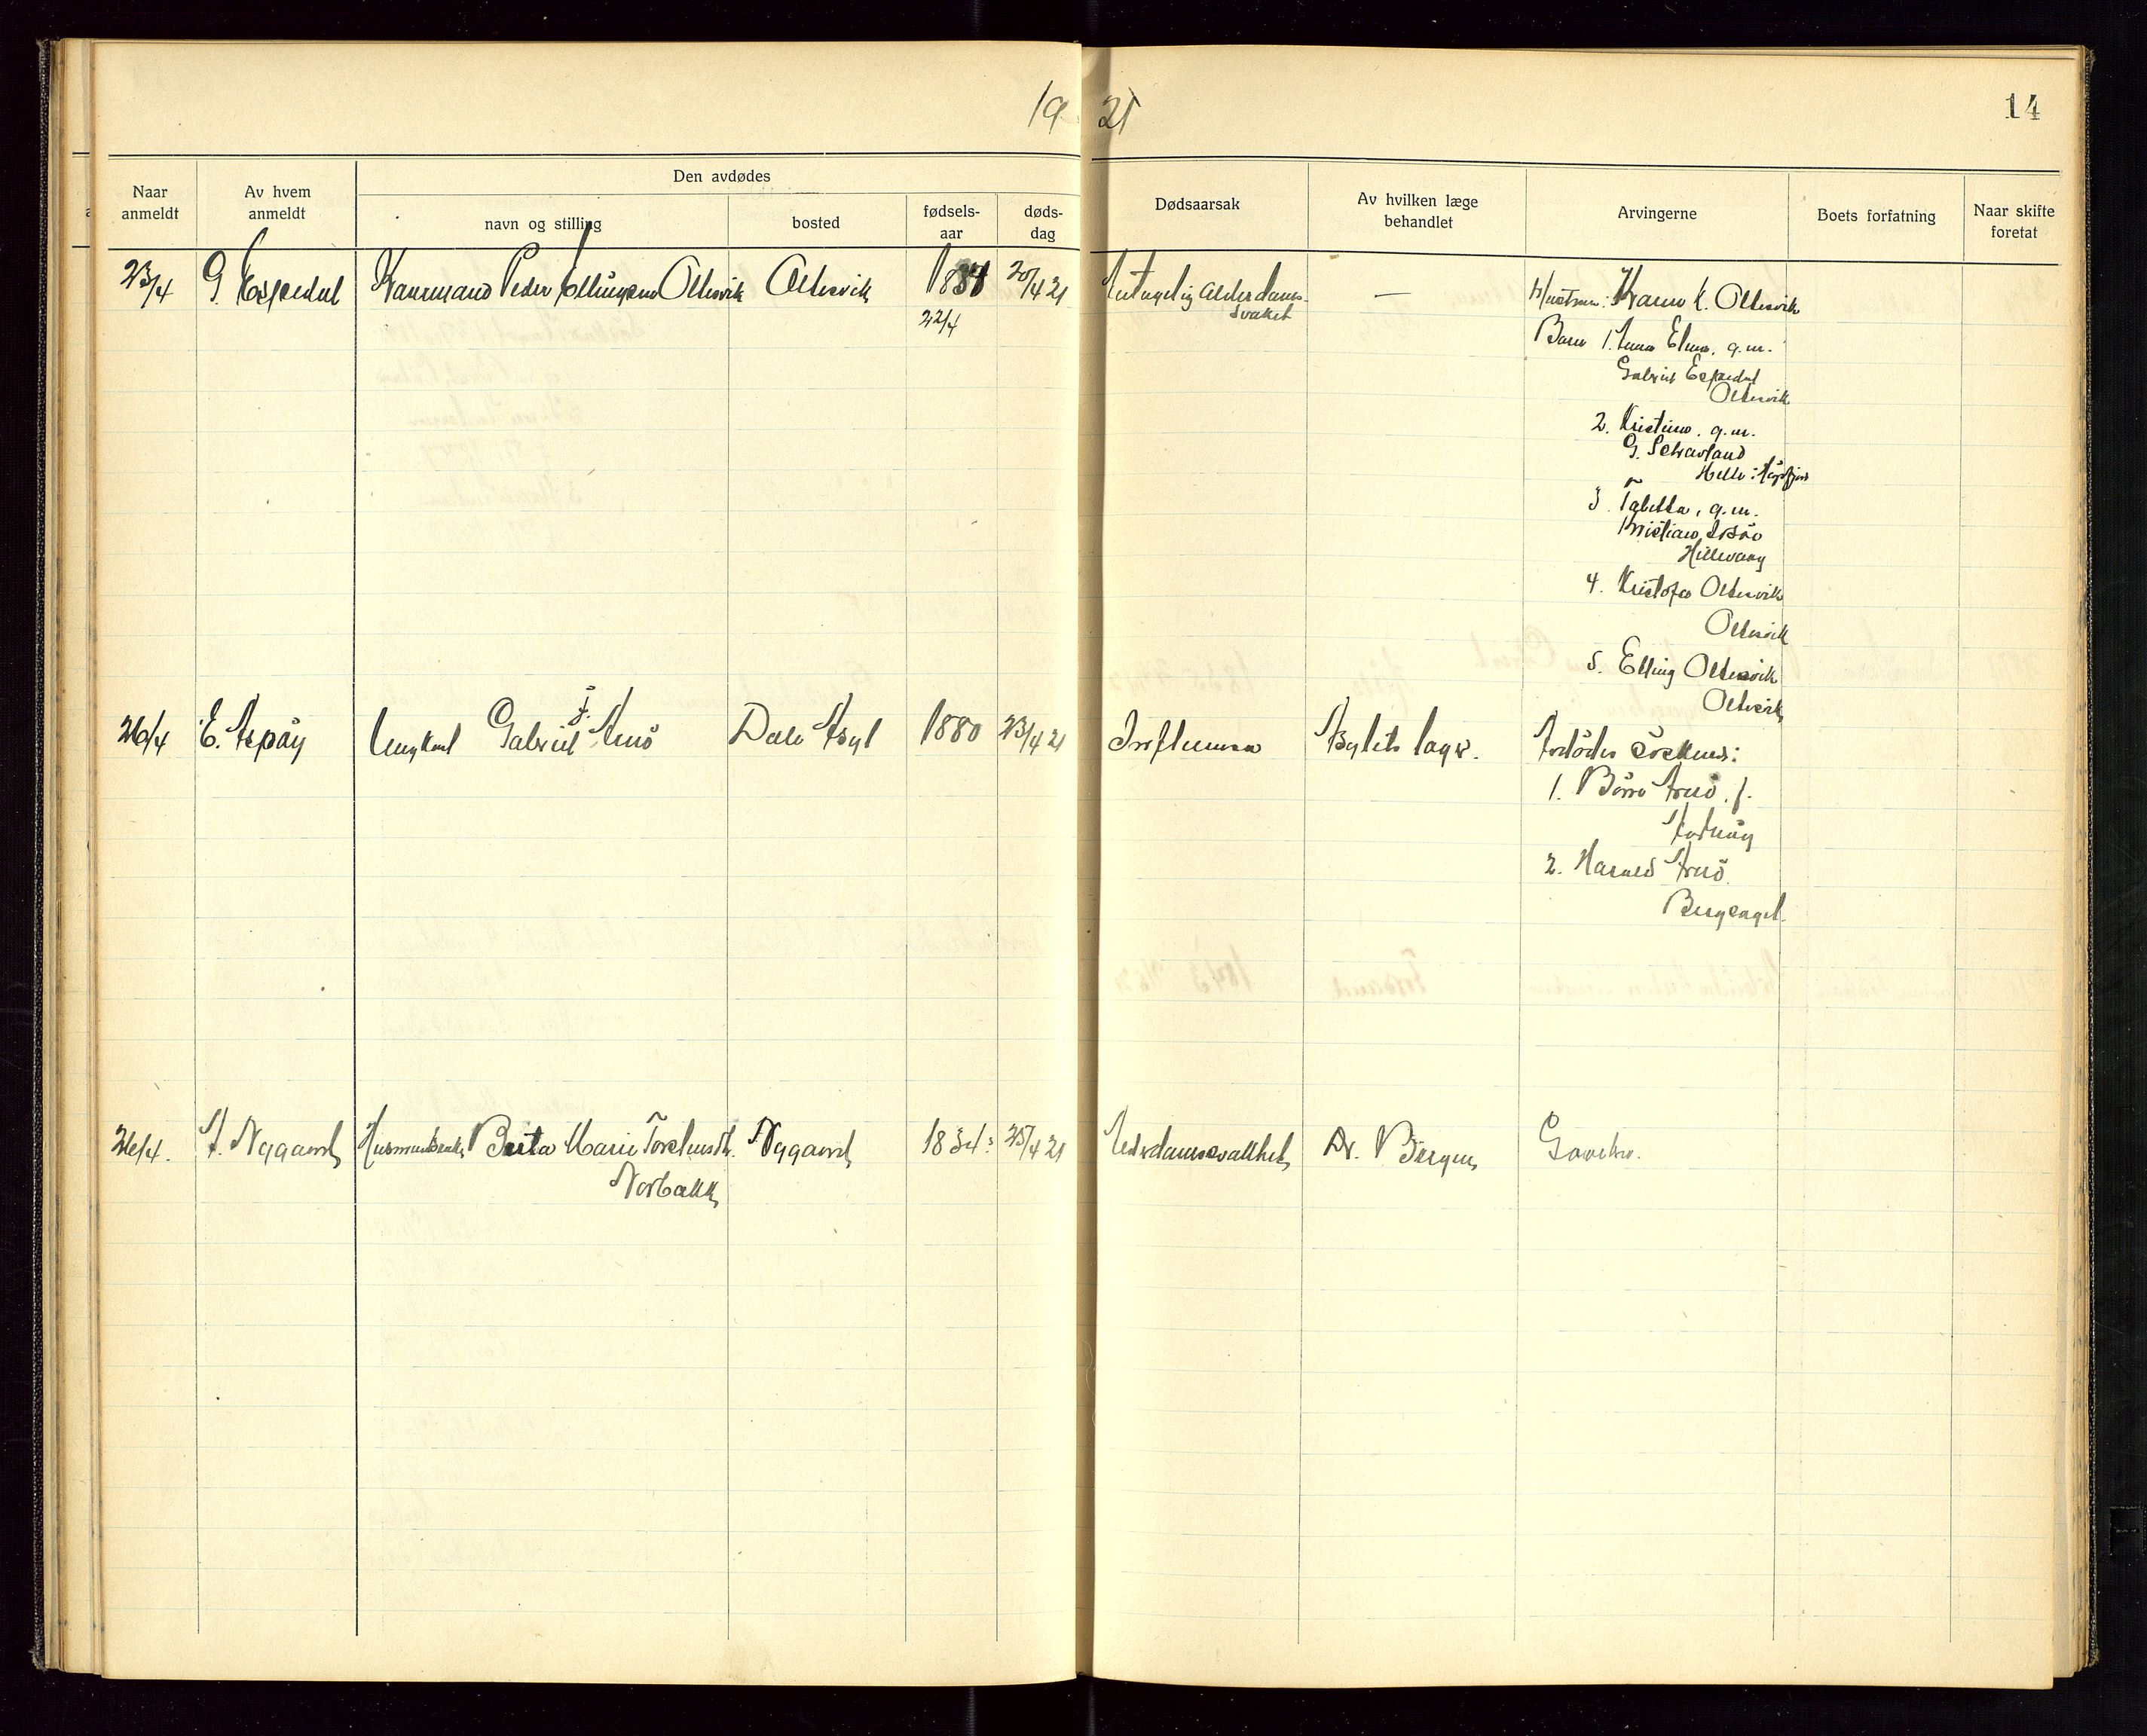 19 21
14
Naar anmeldt
Av hvem anmeldt
Den avdødes
navn og stilling
bosted
fødsels-aar
døds-dag
Dødsaarsak
Av hvilken læge behandlet
Arvingerne
Boets forfatning
Naar skifte foretat
23/4 G. Espedal Kaarmand Peder Ellingsen Oltesvik Oltesvik 1838 20/4 21 Antagelig Alderdoms- — Hustrue: Karen K. Oltesvik
22/4 svakhet
Barn 1. Anna Elene, g.m.
Gabriel Espedal
Oltesvik
2. Kristine, g.m.
G. Selvaland
Helle i Høgsfjord
3. Tabitta, g.m.
Kristian
Hillevaag
4. Kristofer Oltesvik
Oltesvik
5. Elling Oltesvik
Oltesvik
26/4 E. Aspøy Ungkarl Gabriel J. Arnø Dale Asyl 1880 23/4 21 Influensa Asylets læge. Avdødes søskend:
1. Børre Arnø, f.
2. Harald Arnø
Bergsagel
26/4. A. Nygaard Berta Marie Torstensdtr. Nygaard 1834: 25/4 21 Alderdomssvakhet Dr. Børgen
Norbakk